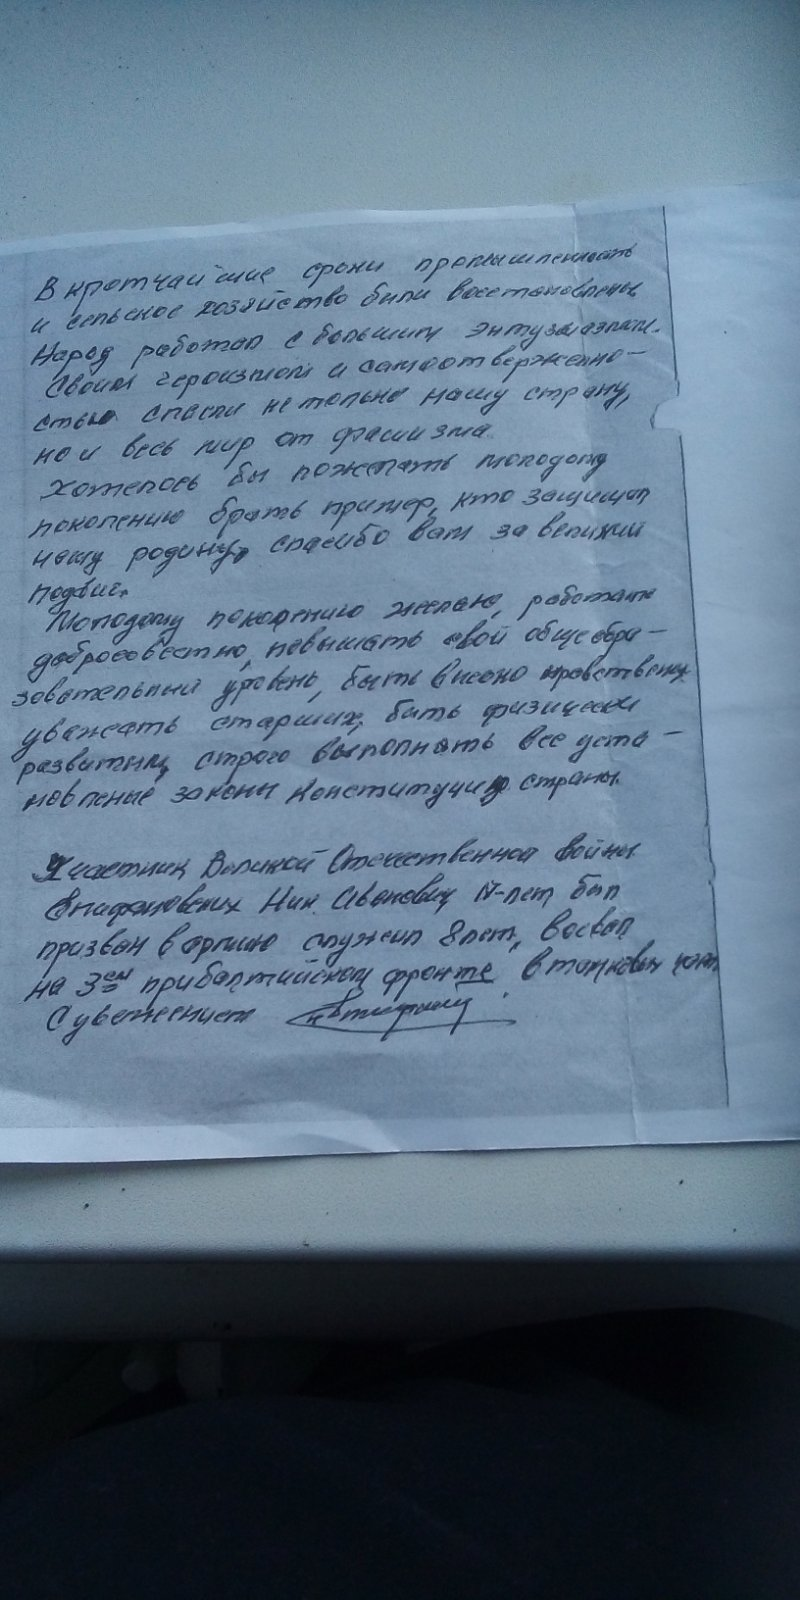 В кротчайшие сроки промышленность
и сельское хозяйство были восстановлены.
Народ работал с большим энтузиазмом.
Своим героизмом и самоотверженно-
стью спасли не только нашу страну,
но и весь мир от фашизма.
Хотелось бы пожелать молодому
поколению брать пример, кто защищал
нашу родину, спасибо Вам за великий
подвиг.
Молодому поколению желаю, работать
добросовестно, повышать свой общеобра-
зовательный уровень, быть высоко нравственны
уважать старших, быть физически
развитым, строго выполнять все уста-
новленые законы Конституции страны.
Участник Великой Отечественной войны
Епифановских Ник. Иванович 17-лет был
призван в армию служил 8 лет, воевал
на 3ем прибалтийском фронте в танковых част
С уважением